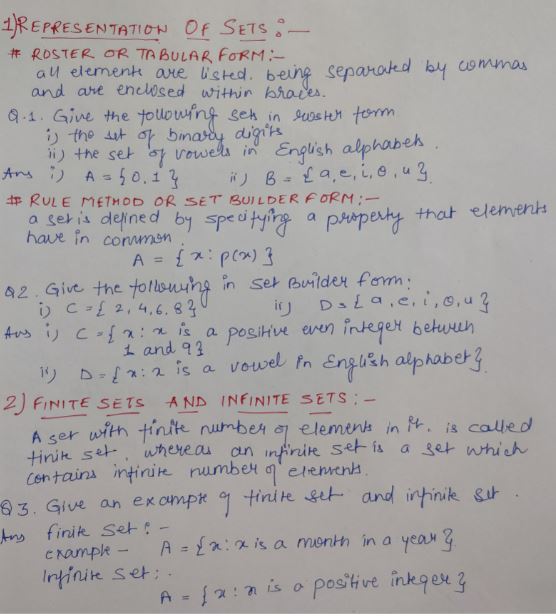 1) REPRESENTATION OF SETS :-
# ROSTER OR TABULAR FORM :-
all elements are listed, being separated by commas
and are enclosed within braces.
Q.1. Give the following sets in roster form
i) the set of binary digits
ii) the set of vowels in English alphabets.
Ans i) A = {0,1} ii) B = {a, e, i, o, u}
# RULE METHOD OR SET BUILDER FORM :-
a set is defined by specifying a property that elements
have in common.
A = {x : p(x)}
Q2. Give the following in set Builder form:
i) C = {2, 4, 6, 8} ii) D = {a, e, i, o, u}
Ans i) C = {x : x is a positive even integer between
1 and 9}
ii) D = {x : x is a vowel in English alphabet}
2) FINITE SETS AND INFINITE SETS :-
A set with finite number of elements in it. is called
finite set, whereas an infinite set is a set which
contains infinite number of elements.
Q3. Give an example of finite set and infinite set.
Ans finite set :-
example - A = {x : x is a month in a year}
Infinite set :.
A = {x : x is a positive integer}